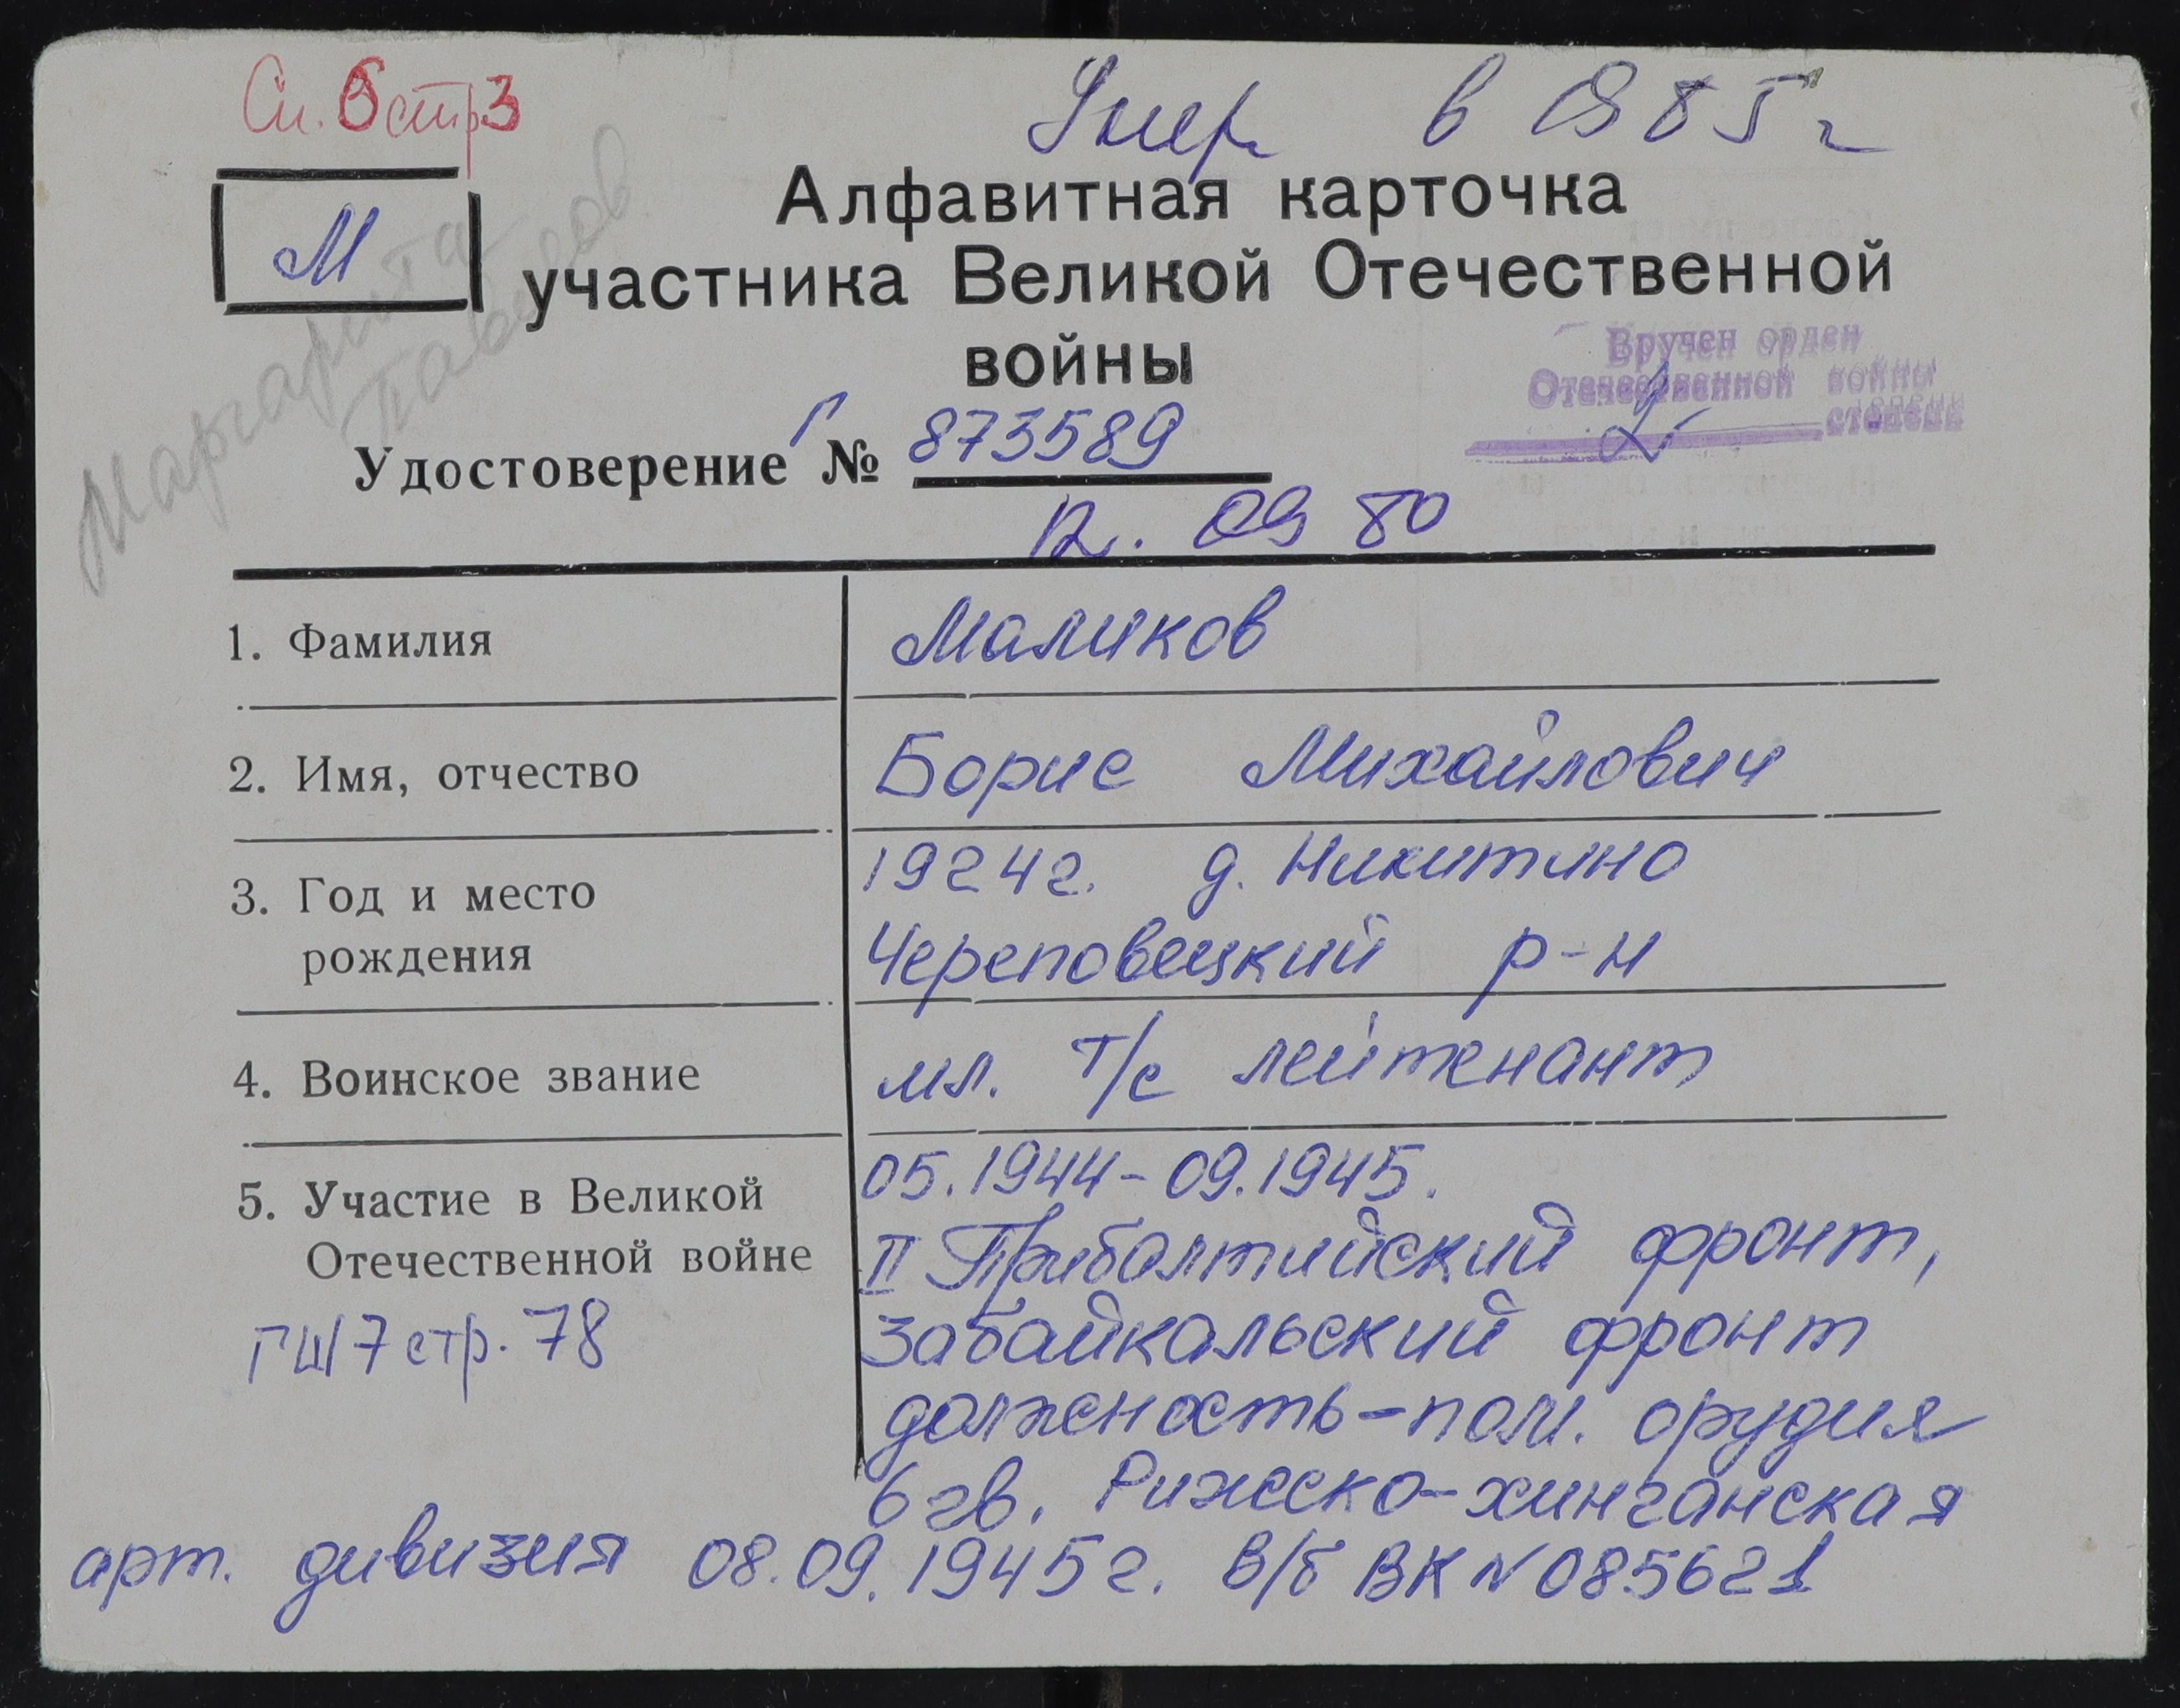 Сп. 6 стр 3
Умер в 1985 г
М
Алфавитная карточка
участника Великой Отечественной
войны
Вручен орден
Отечественной войны
2 степени
Удостоверение Г № 873589
12. 09 80
1. Фамилия Маликов
2. Имя, отчество Борис Михайлович
3. Год и место 1924г. д. Никитино
рождения Череповецкий р-н
4. Воинское звание мл. т/с лейтенант
5. Участие в Великой 05.1944-09.1945.
Отечественной войне II Прибалтийский фронт,
ГШ7 стр. 78 Забайкальский фронт
должность-пом. орудия
6 гв. Рижско-хинганская
арт. дивизия 08.09.1945г. В/б ВК N 085621
Маргарита